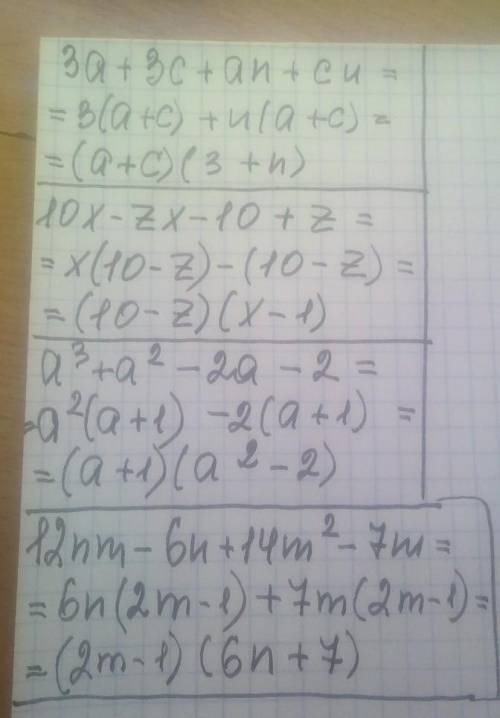 3a + 3c + an + cn =
= 3(a+c) + n(a+c) =
= (a+c)(3+n)
10x - zx - 10 + z =
= x(10-z) - (10-z) =
= (10-z)(x-1)
a³ + a² - 2a - 2 =
= a²(a+1) - 2(a+1) =
= (a+1)(a²-2)
12nm - 6n + 14m² - 7m =
= 6n(2m-1) + 7m(2m-1) =
= (2m-1)(6n+7)